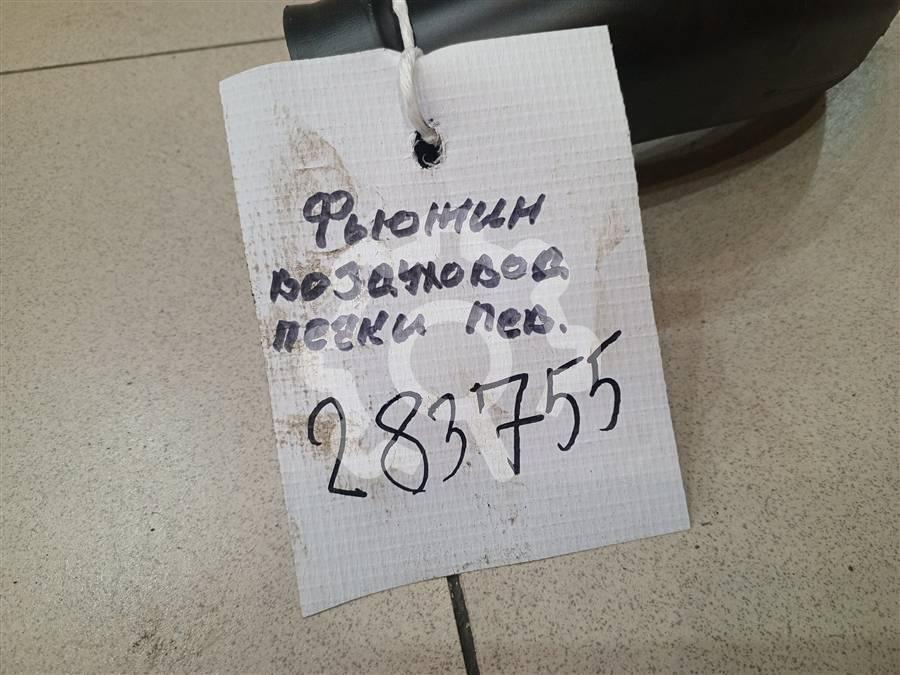 Фьюжин
воздуховод
печки лев.
283755